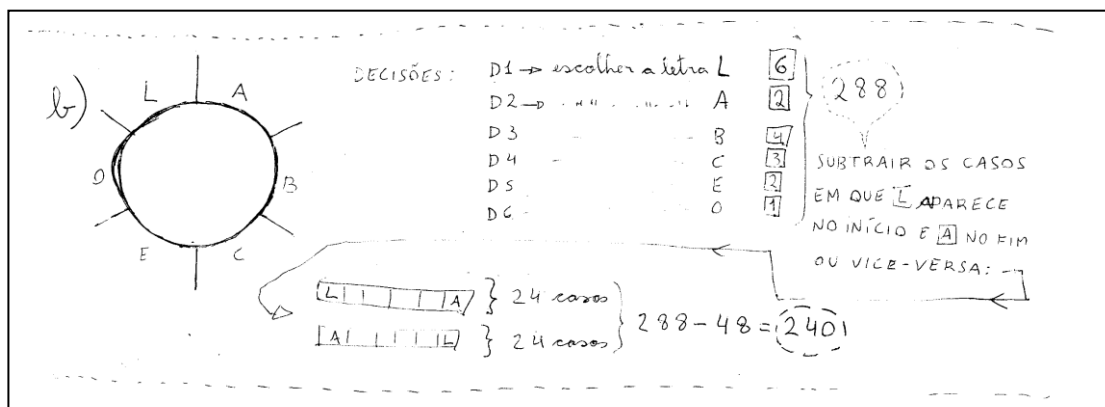 b)
L A
O B
E C
DECISÕES: D1 → escolher a letra L 6
D2 → " " " " A 2
D3 B 4
D4 C 3
D5 E 2
D6 O 1
288
SUBTRAIR OS CASOS
EM QUE L APARECE
NO INÍCIO E A NO FIM
OU VICE-VERSA:
L A } 24 casos
A L } 24 casos
288 - 48 = 240